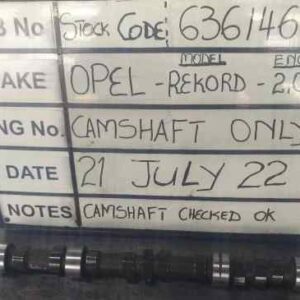 B No STOCK CODE: 636146
MODEL
AKE OPEL - REKORD - 2,0
NG No. CAMSHAFT ONLY
DATE 21 JULY 22
NOTES CAMSHAFT CHECKED OK